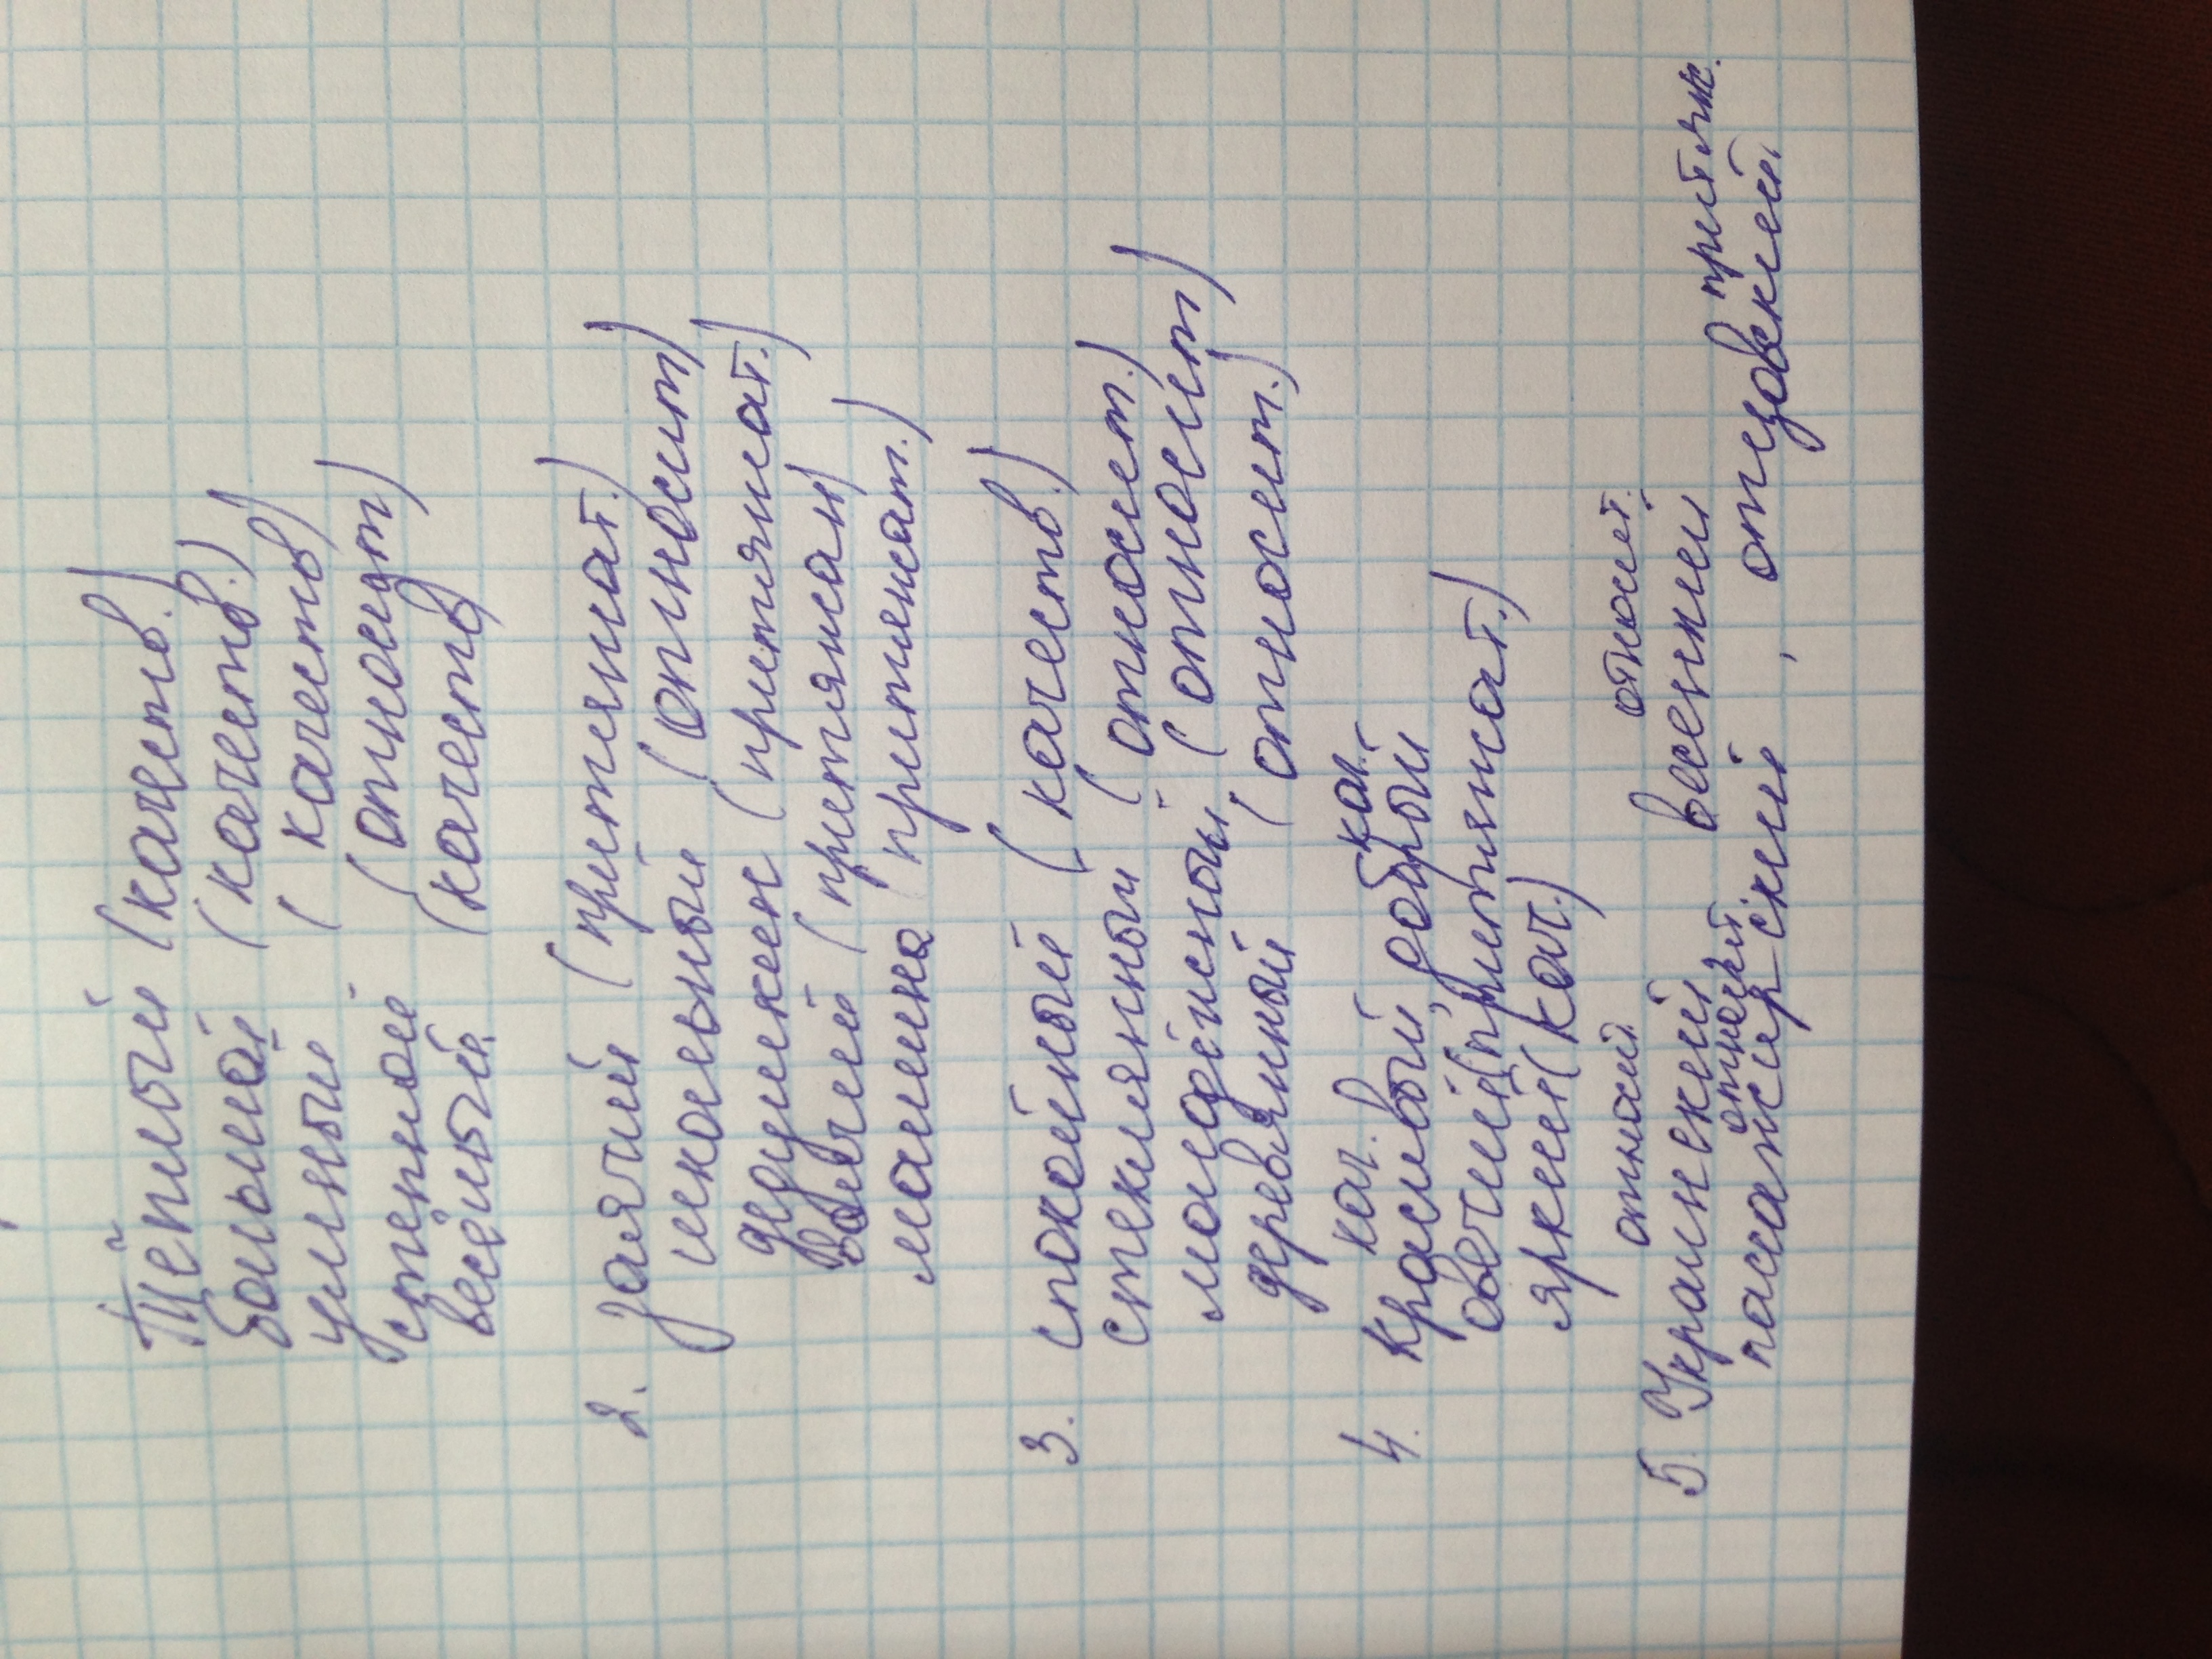 Тёплый (качеств.)
большой (качеств.)
умный (качеств)
степной (относит)
весёлый (качеств)
2. заячий (притяжат.)
школьный (относит)
дедушкин (притяжат.)
волчий (притяжат)
мамина (притяжат.)
3. спокойный (качеств.)
стеклянный (относит.)
молодёжный (относит)
деревянный (относит.)
кач. кач.
4. красивый, добрый
овечий (притяжат.)
яркий (кач.)
относит. относит.
5. Украинский весенний
относит. притяж.
пассажирский, отцовский.